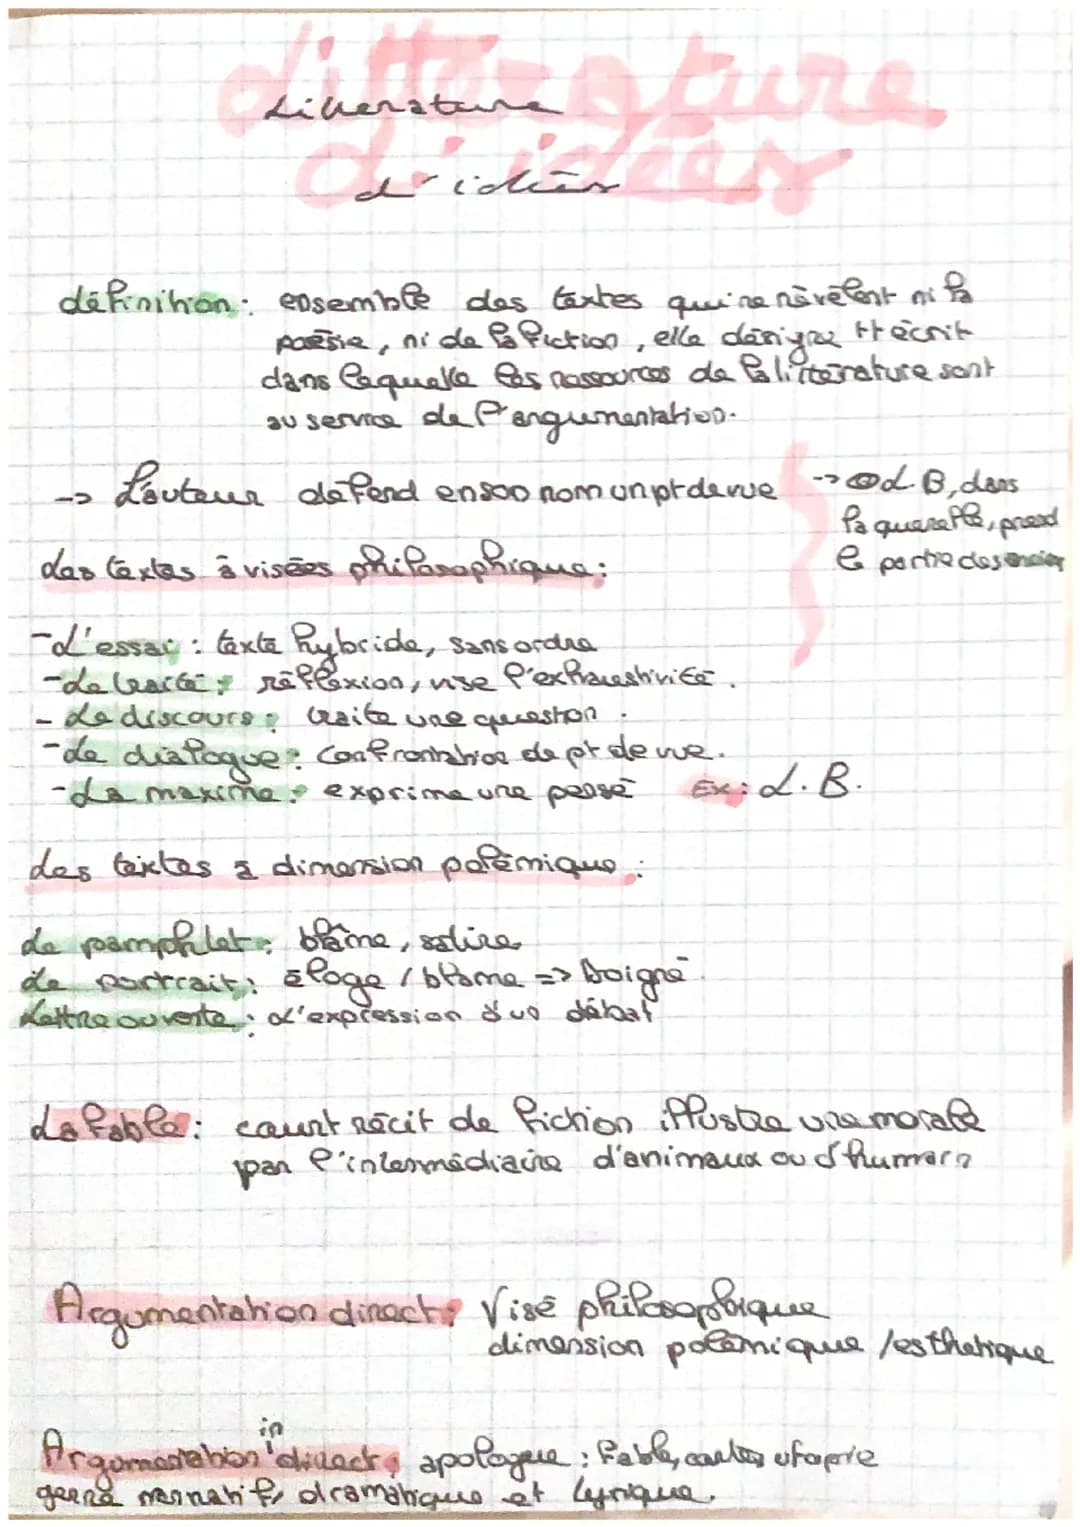 Littérature
d'idées
Litterature
d'idées
définition : ensemble des textes qui ne révèlent ni la
poésie, ni de la fiction, elle désigne tt écrit
dans laquelle les ressources de la littérature sont
au service de l'argumentation.
-> L'auteur défend en son nom un pt de vue
-> L.B, dans
la querelle, prend
le partie des
des textes à visées philosophique :
- L'essai : texte hybride, sans ordre
- Le traité : réflexion, vise l'exhaustivité.
- Le discours : traite une question.
- Le dialogue : Confrontation de pt de vue.
- La maxime : exprime une pensé Ex : L.B.
des textes à dimension polémique :
Le pamphlet : blâme, satire
Le portrait : éloge / blâme => soigné.
Lettre ouverte : L'expression d'un débat
La fable : court récit de fiction illustre une morale
par l'intermédiaire d'animaux ou d'humain
Argumentation direct : Visé philosophique
dimension polémique / esthetique
Argumentation indirect : apologue : fable, contes utopie
genre narratif, dramatique et lyrique.